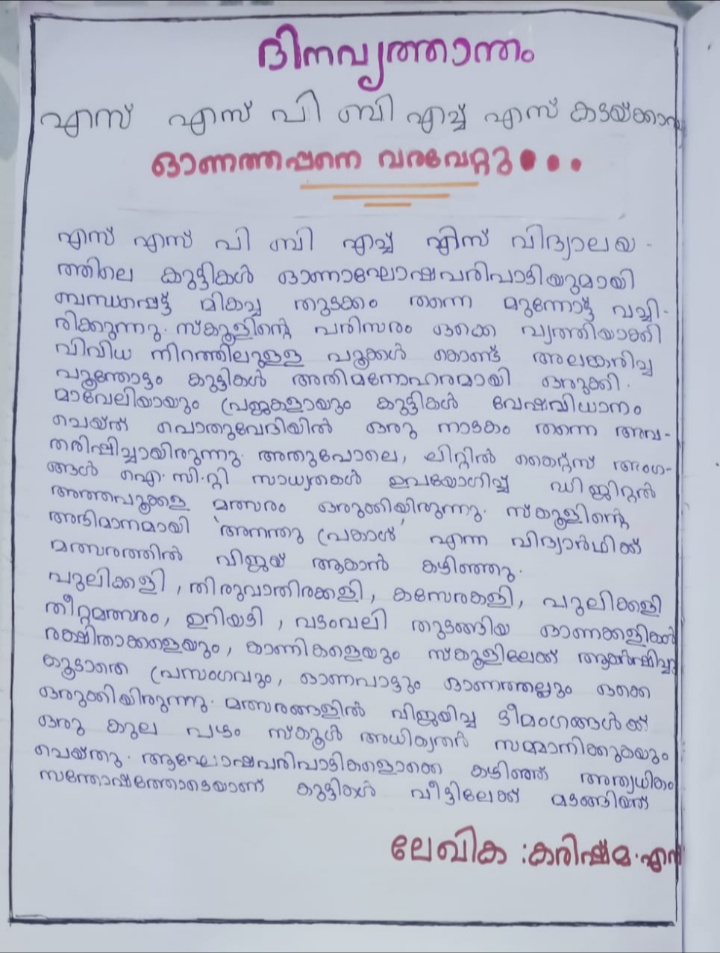 ദിനവൃത്താന്തം
എസ് എസ് പി ബി എച്ച് എസ് കടയ്ക്കാവൂ
ഓണത്തപ്പനെ വരവേറ്റു...
എസ് എസ് പി ബി എച്ച് എസ് വിദ്യാലയ-
ത്തിലെ കുട്ടികൾ ഓണാഘോഷപരിപാടിയുമായി
ബന്ധപ്പെട്ട് മികച്ച തുടക്കം തന്നെ മുന്നോട്ട് വച്ചി-
രിക്കുന്നു. സ്കൂളിന്റെ പരിസരം ഒക്കെ വൃത്തിയാക്കി
വിവിധ നിറത്തിലുള്ള പൂക്കൾ കൊണ്ട് അലങ്കരിച്ച
പൂന്തോട്ടം കുട്ടികൾ അതിമനോഹരമായി ഒരുക്കി.
മാവേലിയായും പ്രജകളായും കുട്ടികൾ വേഷവിധാനം
ചെയ്ത് പൊതുവേദിയിൽ ഒരു നാടകം തന്നെ അവ-
തരിപ്പിച്ചായിരുന്നു. അതുപോലെ, ലിറ്റിൽ കൈറ്റ്സ് അംഗ-
ങ്ങൾ ഐ.സി.റ്റി സാധ്യതകൾ ഉപയോഗിച്ച് ഡിജിറ്റൽ
അത്തപൂക്കള മത്സരം ഒരുക്കിയിരുന്നു. സ്കൂളിന്റെ
അഭിമാനമായി 'അനന്തു പ്രകാശ്' എന്ന വിദ്യാർഥിക്ക്
മത്സരത്തിൽ വിജയ് ആകാൻ കഴിഞ്ഞു.
പുലിക്കളി, തിരുവാതിരക്കളി, കസേരകളി, പുലിക്കളി
തീറ്റമത്സരം, ഉറിയടി, വടംവലി തുടങ്ങിയ ഓണക്കളികൾ
രക്ഷിതാക്കളെയും, കാണികളെയും സ്കൂളിലേക്ക് ആകർഷിച്ചു
കൂടാതെ പ്രസംഗവും, ഓണപാട്ടും ഓണത്തല്ലും ഒക്കെ
ഒരുക്കിയിരുന്നു. മത്സരങ്ങളിൽ വിജയിച്ച ടീമംഗങ്ങൾക്ക്
ഒരു കുല പഴം സ്കൂൾ അധികൃതർ സമ്മാനിക്കുകയും
ചെയ്തു. ആഘോഷപരിപാടികളൊക്കെ കഴിഞ്ഞ് അത്യധികം
സന്തോഷത്തോടെയാണ് കുട്ടികൾ വീട്ടിലേക്ക് മടങ്ങിയത്
ലേഖിക : കരിഷ്മ. എസ്